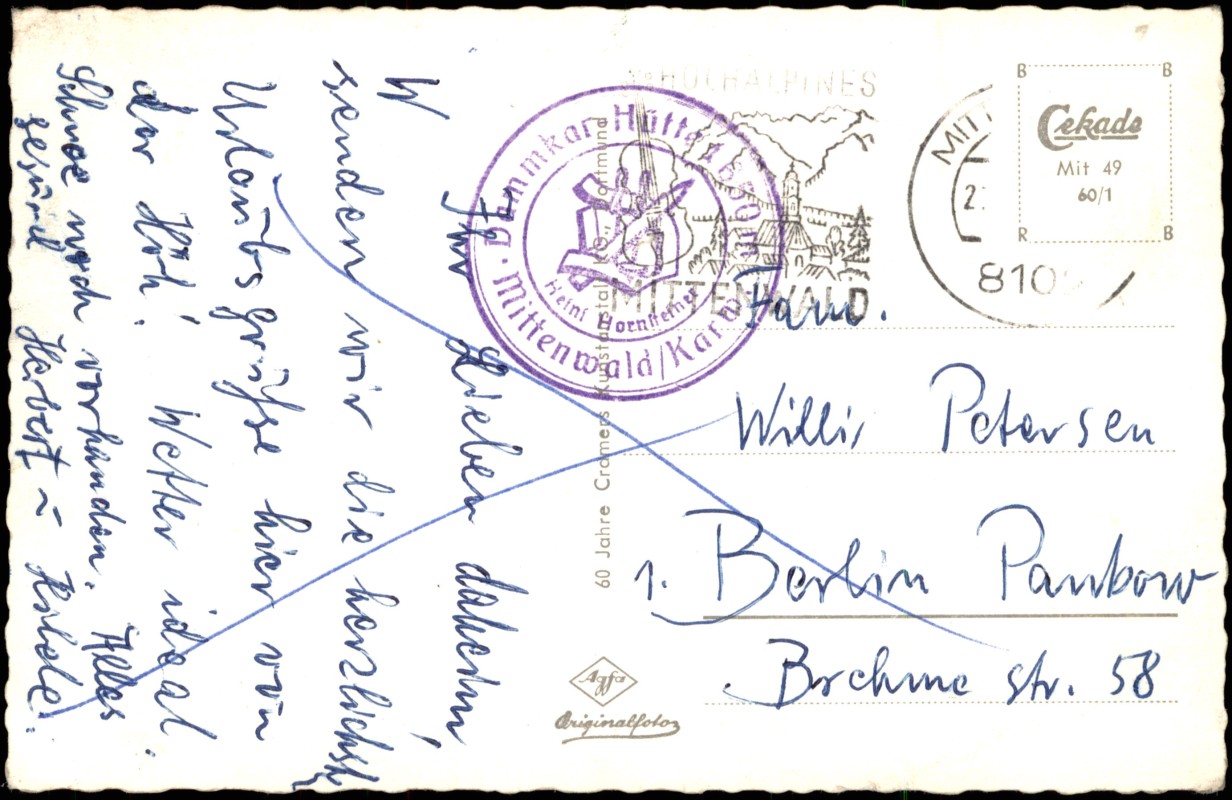 Ihr Lieben daheim,
W
senden wir die herzlichst
Urlaubsgrüße hier von
der Höh! Wetter ideal.
Schnee noch vorhanden. Alles
gesund Herbert u
HOCHALPINES
MITTENWALD
Dammkar-Hütte 1650m
Mittenwald/Karw.
Heini Hornsteiner
MITT
2.
810
B B
Cekade
Mit 49
60/1
R B
60 Jahre Cramers Kunstanstalt KG., Dortmund
Agfa
Originalfoto
Fam.
Willi Petersen
1. Berlin Pankow
Brehme str. 58